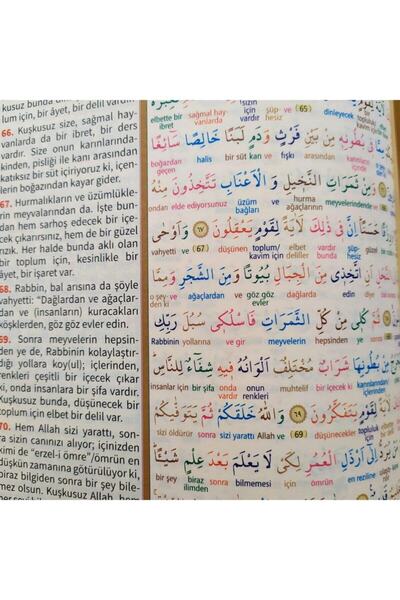 kusuz bunda
lum için, bir âyet, bir delil vardır.
66. Kuşkusuz size, sağmal hay-
vanlarda da bir ibret, bir ders
vardır. Size onun karınlarında-
kinden, pisliği ile kanı arasından
katıksız bir süt içiriyoruz ki, içen-
lerin boğazından kayar gider.
67. Hurmalıkların ve üzümlükle-
rin meyvalarından da. İşte bun-
dan hem sarhoş edecek bir içe-
cek çıkarırsınız, hem de bir güzel
rızık. Her halde bunda aklı olan
bir toplum için, kesinlikle bir
âyet, bir işaret var.
68. Rabbin, bal arısına da şöyle
vahyetti: "Dağlardan ve ağaçlar-
dan ve (insanların) kuracakları
köşklerden, göz göz evler edin.
69. Sonra meyvelerin hepsin-
den ye de, Rabbinin kolaylaştır-
dığı yollara koy(ul); içlerinden,
renkleri çeşitli bir içecek çıkar
ki, onda insanlara bir şifa vardır.
Kuşkusuz bunda, düşünecek bir
toplum için elbet bir delil var.
70. Hem Allah sizi yarattı, son-
ra sizin canınızı alıyor; içinizden
kimi de "erzel-i ömre"/ömrün en
düşkün zamanına götürülüyor ki,
biraz bilgiden sonra bir şey bile-
mez olsun. Kuşkusuz Allah, hem
elbette bir ibret sağmal hay-vanlarda vardır sizin için şüp-hesiz ve (65) dinleyecek toplumu
بُطُونِهِ مِنْ بَيْنِ فَرْثٍ وَدَمٍ لَبَنًا خَالِصًا سَآئِغًا
boğazdan geçen halis bir süt kan ve fışkı arasından karınların
وَمِنْ ثَمَرَاتِ النَّخِيلِ وَالْاَعْنَابِ تَتَّخِذُونَ مِنْهُ
ondan elde ediyorsunuz üzüm bağları ve hurma ağaçlarının meyvelerinden
حَسَنًا اِنَّ فِي ذٰلِكَ لَاٰيَةً لِقَوْمٍ يَعْقِلُونَ ٦٧ وَاَوْحٰى
vahyetti ve (67) düşünen toplum/kavim için elbet deliller vardır bunda şüp-hesiz güzel bir
اَنِ اتَّخِذِي مِنَ الْجِبَالِ بُيُوتًا وَمِنَ الشَّجَرِ وَمِمَّا
o şey-den ki ve ağaçlardan ve göz göz evler dağlarda edin diye
ثُمَّ كُلِي مِنْ كُلِّ الثَّمَرَاتِ فَاسْلُكِي سُبُلَ رَبِّكِ
Rabbinin yollarına ve gir meyvelerin hepsinden ye sonra
مِنْ بُطُونِهَا شَرَابٌ مُخْتَلِفٌ اَلْوَانُهُ فِيهِ شِفَآءٌ لِلنَّاسِ
insanlar için bir şifa vardır onda renkleri onun muhtelif bir içecek ki karınlarından/içlerinden
لَاٰيَةً لِقَوْمٍ يَتَفَكَّرُونَ ٦٩ وَاللّٰهُ خَلَقَكُمْ ثُمَّ يَتَوَفّٰيكُمْ
sizi öldürür sonra sizi yarattı Allah ve (69) düşünecekler topluluk için
يُرَدُّ اِلٰٓى اَرْذَلِ الْعُمُرِ لِكَيْ لَا يَعْلَمَ بَعْدَ عِلْمٍ شَيْـًٔا
bir şey biraz ilimden sonra bilmemesi için ömrün en reziline